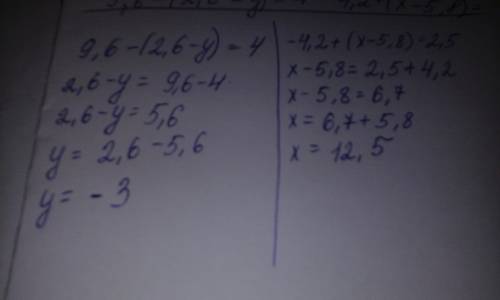 9,6-(2,6-y)=4
2,6-y=9,6-4
2,6-y=5,6
y=2,6-5,6
y=-3
-4,2+(x-5,8)=2,5
x-5,8=2,5+4,2
x-5,8=6,7
x=6,7+5,8
x=12,5